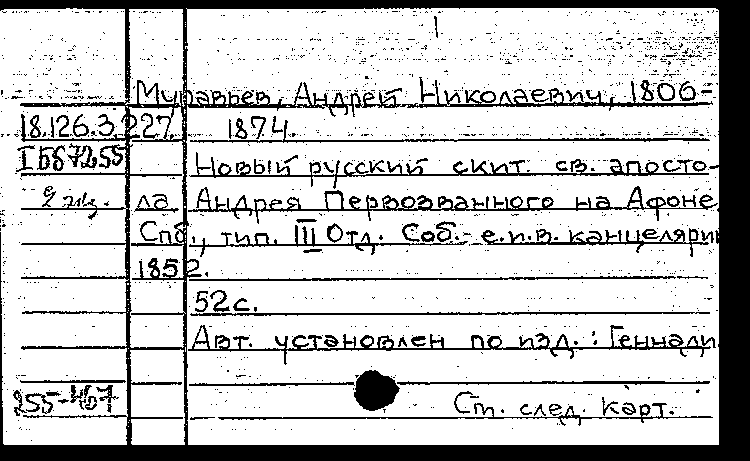 Муравьев, Андрей Николаевич, 1806-
18.126.3.227 1874.
Новый русский скит. св. апосто-
2 экз. ла Андрея Первозванного на Афоне
Спб., тип. III Отд. Соб.- е.и.в. канцелярии
1852.
52 с.
Авт. установлен по изд.: Геннади
255-467 Сm. след. карт.